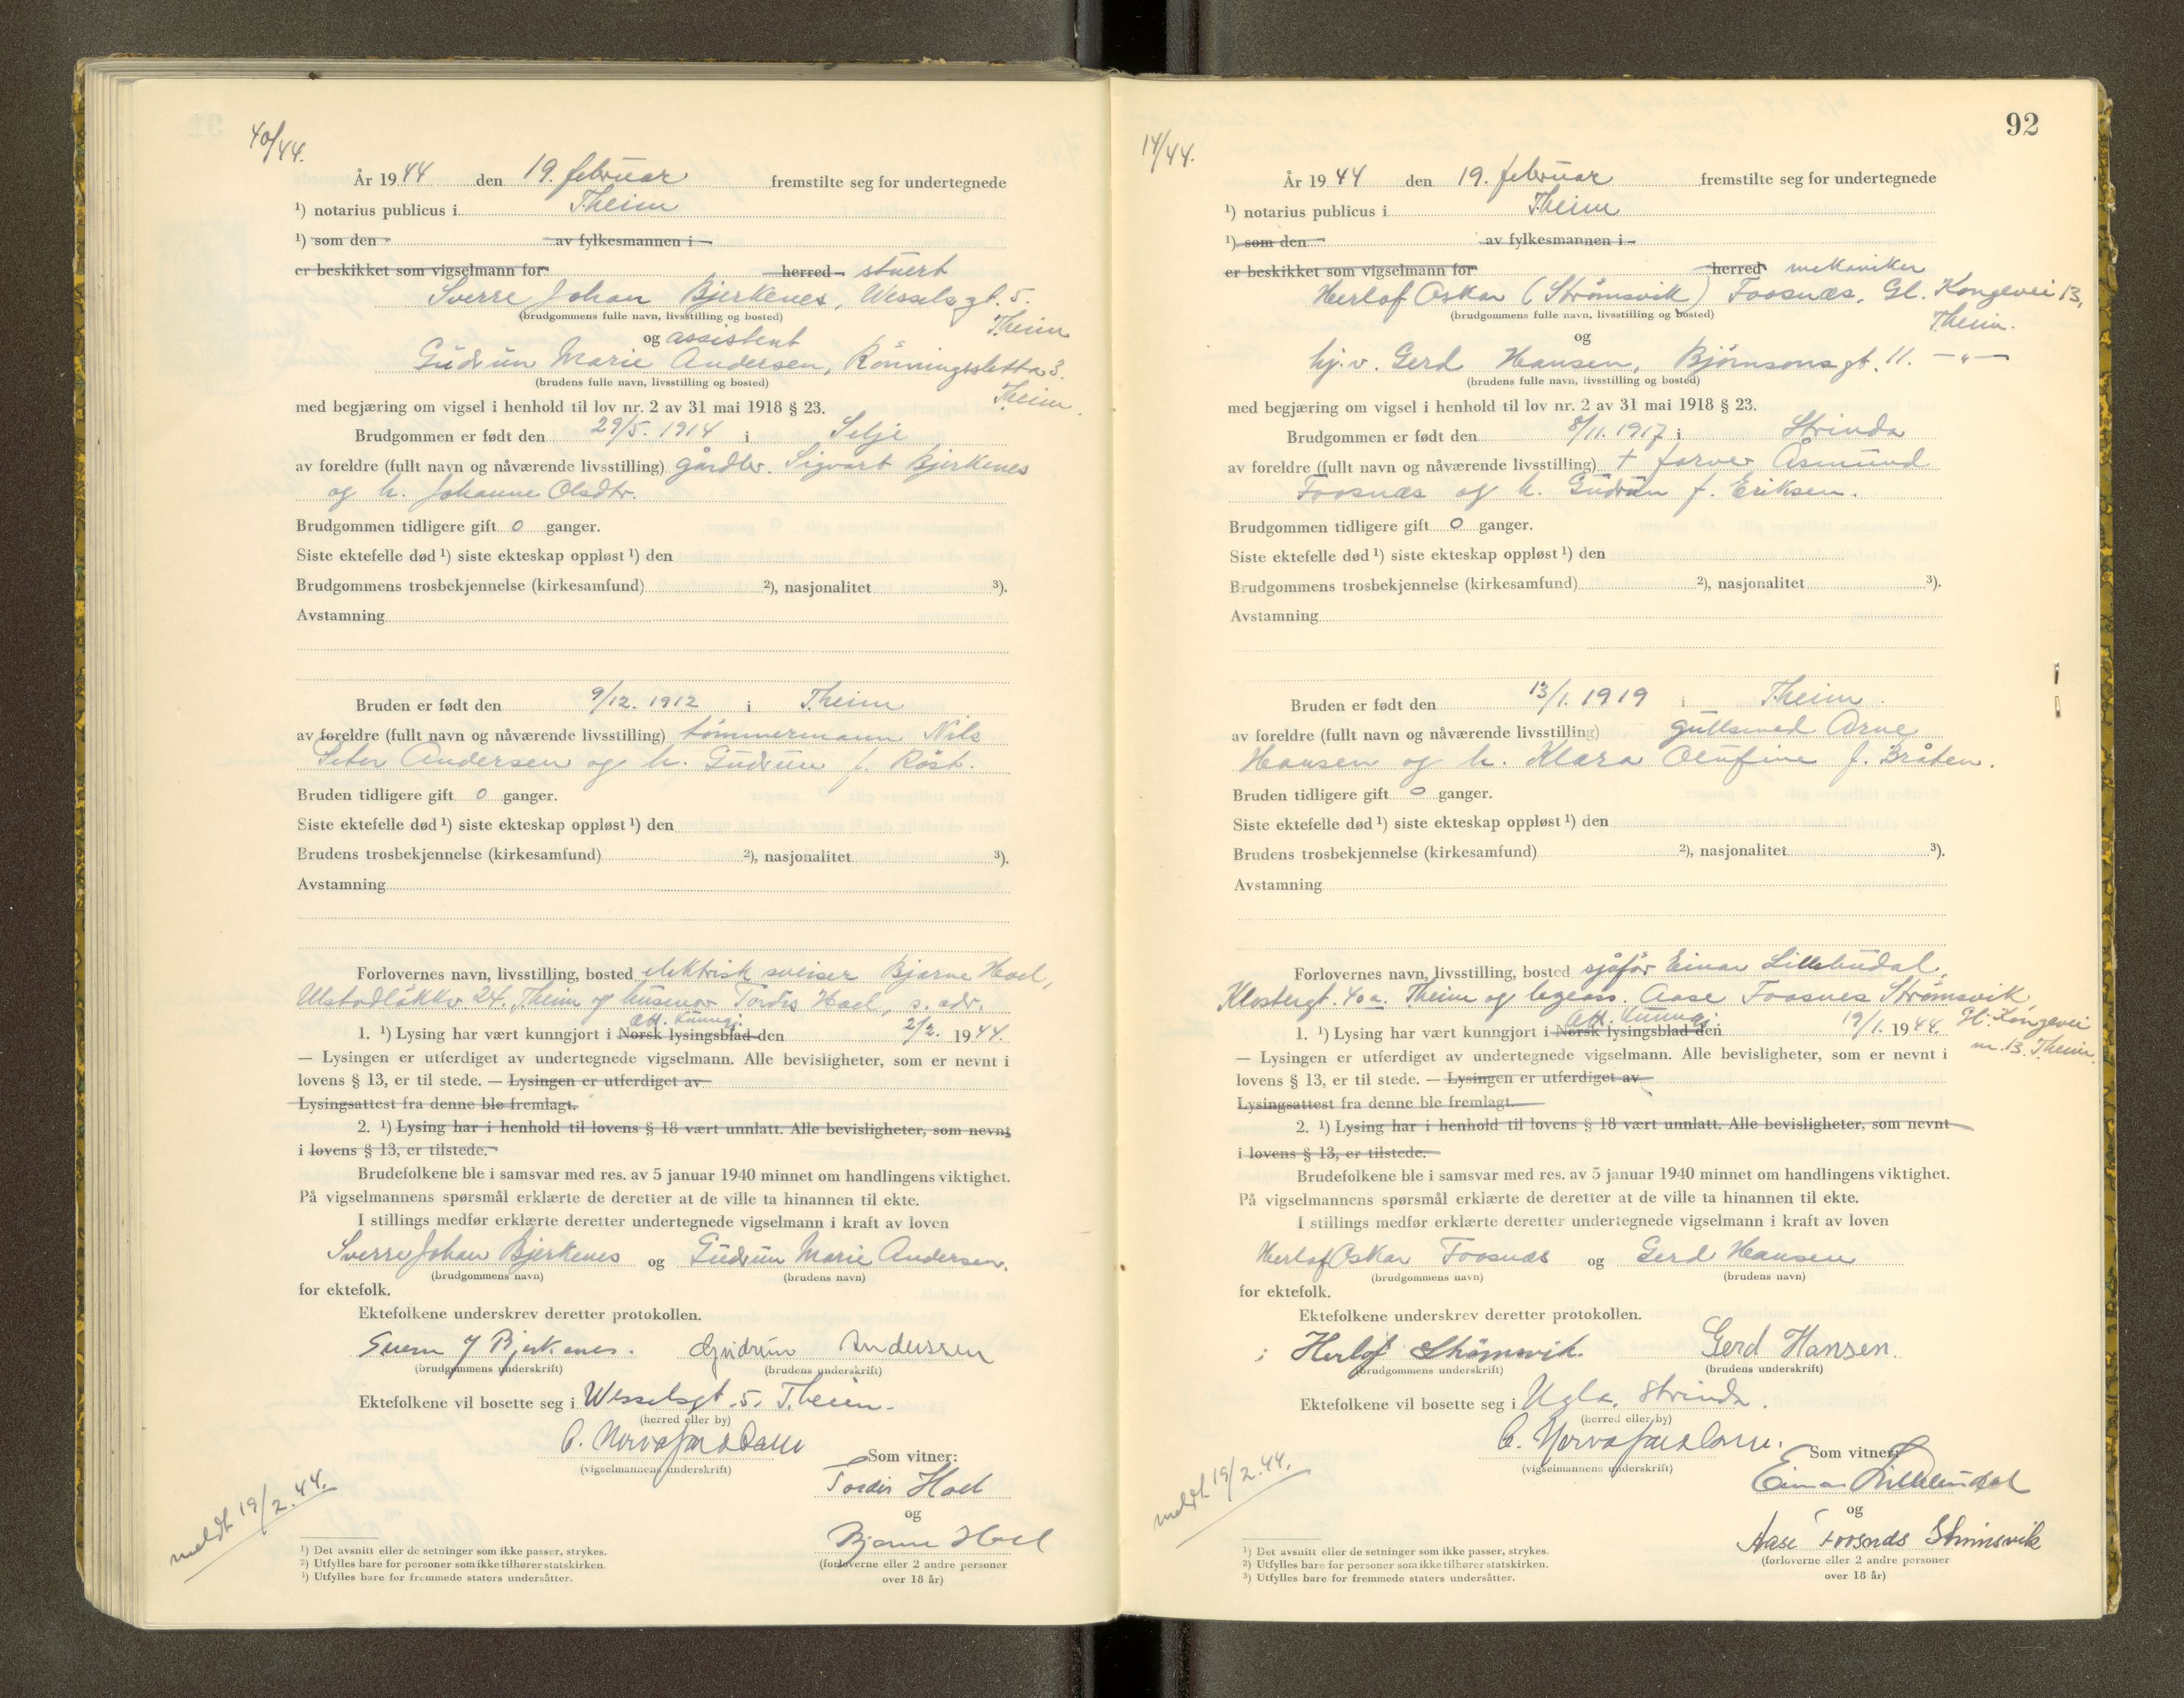 40/44.
År 1944 den 19. februar fremstilte seg for undertegnede
¹) notarius publicus i Theim
¹) som den av fylkesmannen i
er beskikket som vigselmann for herred stuert
Sverre Johan Bjerkenes, Wesselsgt. 5.
(brudgommens fulle navn, livsstilling og bosted)
Theim
og assistent
Gudrun Marie Andersen, Rönningsletta 3.
(brudens fulle navn, livsstilling og bosted)
Theim.
med begjæring om vigsel i henhold til lov nr. 2 av 31 mai 1918 § 23.
Brudgommen er født den 29/5. 1914 i Selje
av foreldre (fullt navn og nåværende livsstilling) gårdbr. Sigvart Bjerkenes
og h. Johanne Olsdtr.
Brudgommen tidligere gift 0 ganger.
Siste ektefelle død ¹) siste ekteskap oppløst ¹) den
Brudgommens trosbekjennelse (kirkesamfund) ²), nasjonalitet ³).
Avstamning
Bruden er født den 9/12. 1912 i Theim
av foreldre (fullt navn og nåværende livsstilling) tömmermann Nils
Peter Andersen og h. Gudrun f. Röst.
Bruden tidligere gift 0 ganger.
Siste ektefelle død ¹) siste ekteskap oppløst ¹) den
Brudens trosbekjennelse (kirkesamfund) ²), nasjonalitet ³).
Avstamning
Forlovernes navn, livsstilling, bosted elektrisk sveiser Bjarne Hoel,
24. Theim og husmor Tordis Hoel, s. adr.
off. kunngj.
1. ¹) Lysing har vært kunngjort i Norsk lysingsblad den 2/2. 1944.
— Lysingen er utferdiget av undertegnede vigselmann. Alle bevisligheter, som er nevnt i
lovens § 13, er til stede. — Lysingen er utferdiget av
Lysingsattest fra denne ble fremlagt.
2. ¹) Lysing har i henhold til lovens § 18 vært unnlatt. Alle bevisligheter, som nevnt
i lovens § 13, er tilstede.
Brudefolkene ble i samsvar med res. av 5 januar 1940 minnet om handlingens viktighet.
På vigselmannens spørsmål erklærte de deretter at de ville ta hinannen til ekte.
I stillings medfør erklærte deretter undertegnede vigselmann i kraft av loven
Sverre Johan Bjerkenes og Gudrun Marie Andersen.
(brudgommens navn) (brudens navn)
for ektefolk.
Ektefolkene underskrev deretter protokollen.
Sverre J Bjerkenes. Gudrun Andersen
(brudgommens underskrift) (brudens underskrift)
Ektefolkene vil bosette seg i Wesselsgt. 5. Theim.
(herred eller by)
(vigselmannens underskrift)
Som vitner:
Tordis Hoel
og
Bjarne Hoel
(forloverne eller 2 andre personer
over 18 år)
meldt 19/2.44.
¹) Det avsnitt eller de setninger som ikke passer, strykes.
²) Utfylles bare for personer som ikke tilhører statskirken.
³) Utfylles bare for fremmede staters undersåtter.
92
14/44.
År 1944 den 19. februar fremstilte seg for undertegnede
¹) notarius publicus i Theim
¹) som den av fylkesmannen i
er beskikket som vigselmann for herred mekaniker
Herlof Oskar (Strömsvik) Foosnæs, Gl. Kongevei 13,
(brudgommens fulle navn, livsstilling og bosted)
Theim.
og
hj.v. Gerd Hansen, Björnsonsgt. 11. —"—
(brudens fulle navn, livsstilling og bosted)
med begjæring om vigsel i henhold til lov nr. 2 av 31 mai 1918 § 23.
Brudgommen er født den 8/11. 1917 i Strinda
av foreldre (fullt navn og nåværende livsstilling) † farver Åsmund
Foosnæs og h. Gudrun f. Eriksen.
Brudgommen tidligere gift 0 ganger.
Siste ektefelle død ¹) siste ekteskap oppløst ¹) den
Brudgommens trosbekjennelse (kirkesamfund) ²), nasjonalitet ³).
Avstamning
Bruden er født den 13/1. 1919 i Theim.
av foreldre (fullt navn og nåværende livsstilling) gullsmed Arne
Hansen og h. Klara Olufine f. Bråten.
Bruden tidligere gift 0 ganger.
Siste ektefelle død ¹) siste ekteskap oppløst ¹) den
Brudens trosbekjennelse (kirkesamfund) ²), nasjonalitet ³).
Avstamning
Forlovernes navn, livsstilling, bosted sjåför Einar Lillebudal,
Klostergt. 40a. Theim og legeass. Aase Foosnes Strömsvik,
Gl. Kongevei
nr. 13. Theim.
off. kunngj.
1. ¹) Lysing har vært kunngjort i Norsk lysingsblad den 19/1. 1944.
— Lysingen er utferdiget av undertegnede vigselmann. Alle bevisligheter, som er nevnt i
lovens § 13, er til stede. — Lysingen er utferdiget av
Lysingsattest fra denne ble fremlagt.
2. ¹) Lysing har i henhold til lovens § 18 vært unnlatt. Alle bevisligheter, som nevnt
i lovens § 13, er tilstede.
Brudefolkene ble i samsvar med res. av 5 januar 1940 minnet om handlingens viktighet.
På vigselmannens spørsmål erklærte de deretter at de ville ta hinannen til ekte.
I stillings medfør erklærte deretter undertegnede vigselmann i kraft av loven
Herlof Oskar Foosnæs og Gerd Hansen
(brudgommens navn) (brudens navn)
for ektefolk.
Ektefolkene underskrev deretter protokollen.
Herlof Strömsvik. Gerd Hansen.
(brudgommens underskrift) (brudens underskrift)
Ektefolkene vil bosette seg i Ugla, Strinda.
(herred eller by)
(vigselmannens underskrift)
Som vitner:
Einar Lillebudal
og
Aase Foosnæs Strömsvik
(forloverne eller 2 andre personer
over 18 år)
meldt 19/2.44.
¹) Det avsnitt eller de setninger som ikke passer, strykes.
²) Utfylles bare for personer som ikke tilhører statskirken.
³) Utfylles bare for fremmede staters undersåtter.